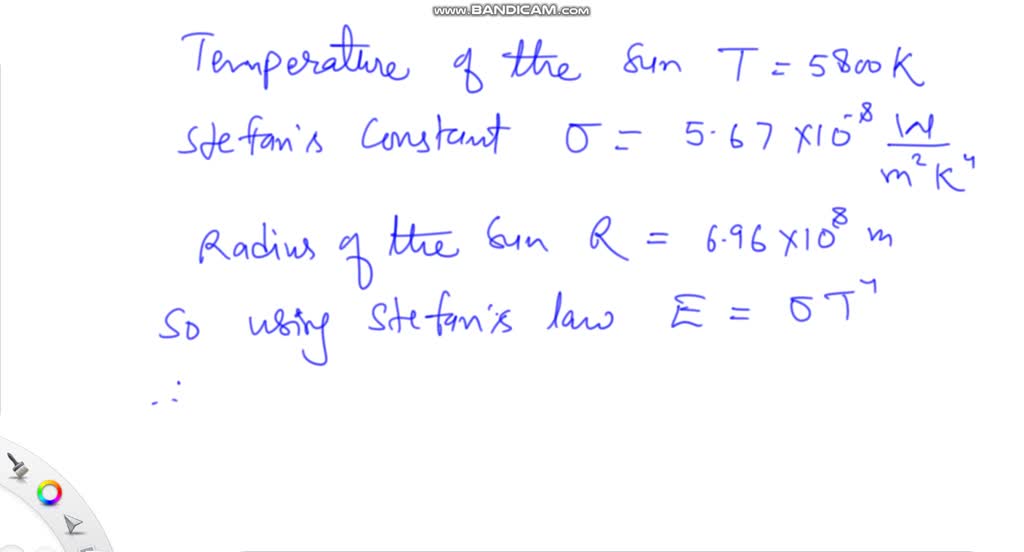 www.BANDICAM.com
Temperature of the Sun T = 5800K
Stefan's Constant σ = 5.67 × 10⁻⁸ W/m²K⁴
Radius of the Sun R = 6.96 × 10⁸ m
So using Stefan's law E = σT⁴
∴